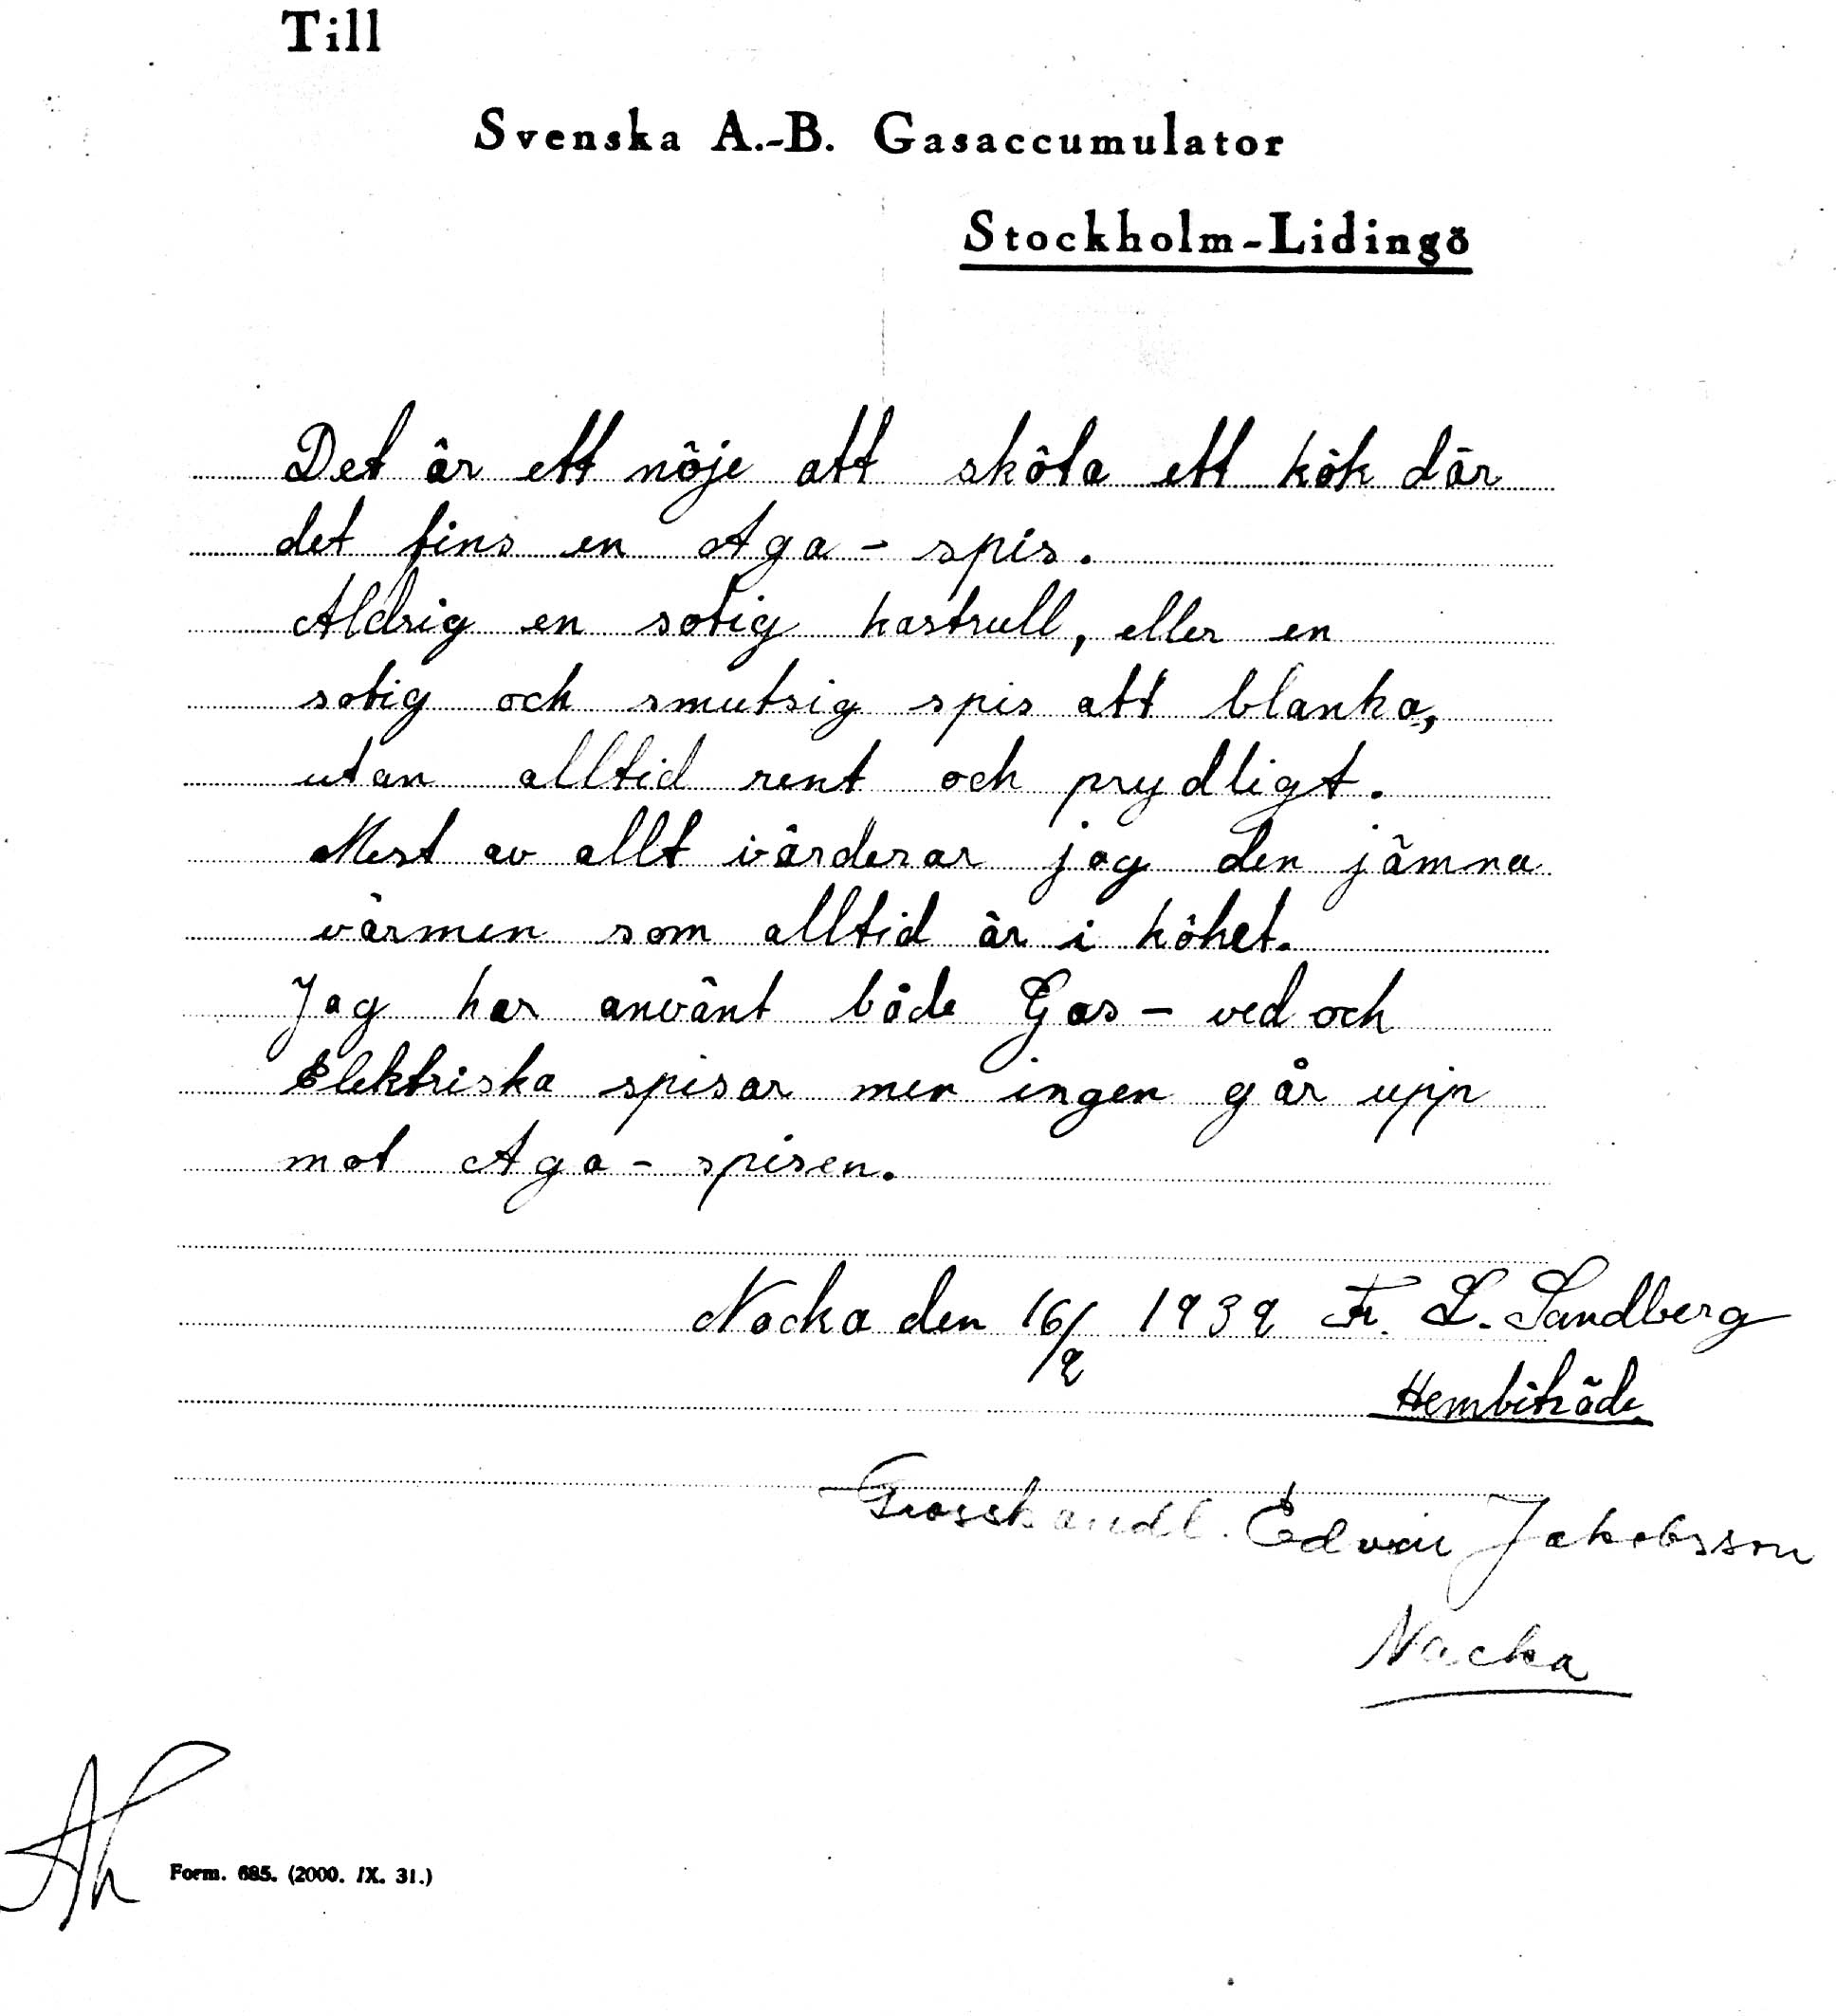 Till
Svenska A.-B. Gasaccumulator
Stockholm-Lidingö
Det är ett nöje att sköta ett kök där
det fins en Aga - spis.
Aldrig en sotig kastrull, eller en
sotig och smutsig spis att blanka,
utan alltid rent och prydligt.
Mest av allt värderar jag den jämna
värmen som alltid är i köket.
Jag har använt både Gas - ved och
Elektriska spisar men ingen går upp
mot Aga - spisen.
Nacka den 16/9 1939 Fr. L. Sandberg
Hembiträde
Grosshandl. Edvin Jakobsson
Nacka
Form. 685. (2000. IX. 31.)